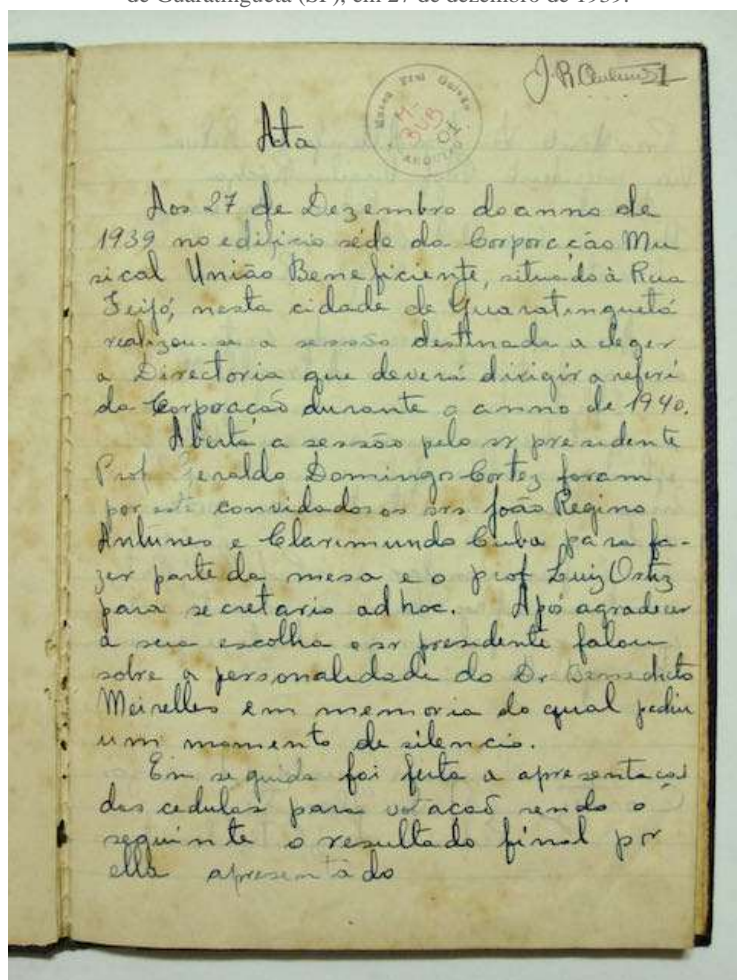 de Guaratinguetá (SP), em 27 de dezembro de 1939.
Museu Frei Galvão
M-
BUB
01
ARQUIVO
Ata
Aos 27 de Dezembro do anno de
1939 no edificio séde da Corporacção Mu
sical União Beneficiente, situado à Rua
Feijó, nesta cidade de Guaratinguetá
realizou-se a sessão destinada a eleger
a Directoria que deverá dirigir a referi
da Corporacaõ durante o anno de 1940.
Aberta a sessão pelo sr presidente
Prof Geraldo Domingos Cortez foram
por este convidados os srs João Regino
Antunes e Clarimundo Cuba para fa-
zer parte da mesa e o prof Luiz Ortiz
para secretario ad hoc. Apó agradecer
a sua escolha o sr presidente falou
sobre a personalidade do Dr Benedicto
Meirelles em memoria do qual pediu
um momento de silencio.
Em seguida foi feita a apresentacaõ
das cedulas para votacaõ sendo o
seguinte o resultado final por
ella apresentado